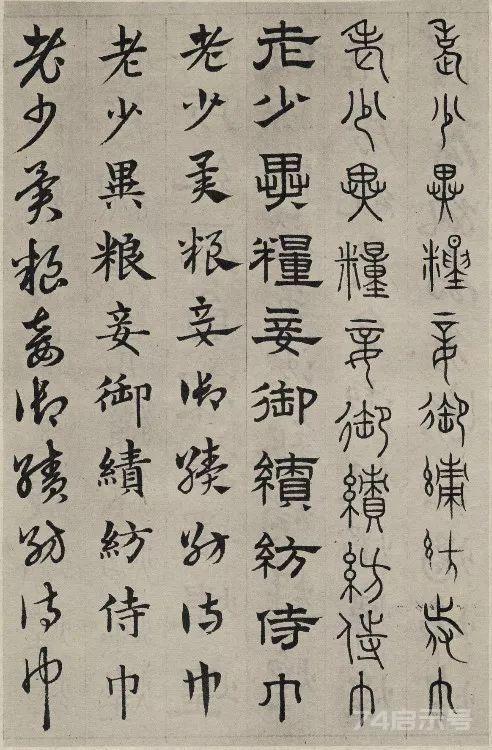 老少異糧妾御績紡侍巾
老少異糧妾御績紡侍巾
老少異糧妾御績紡侍巾
老少異粮妾御績紡侍巾
老少異粮妾御績紡侍巾
老少異粮妾御績紡侍巾
74启示号